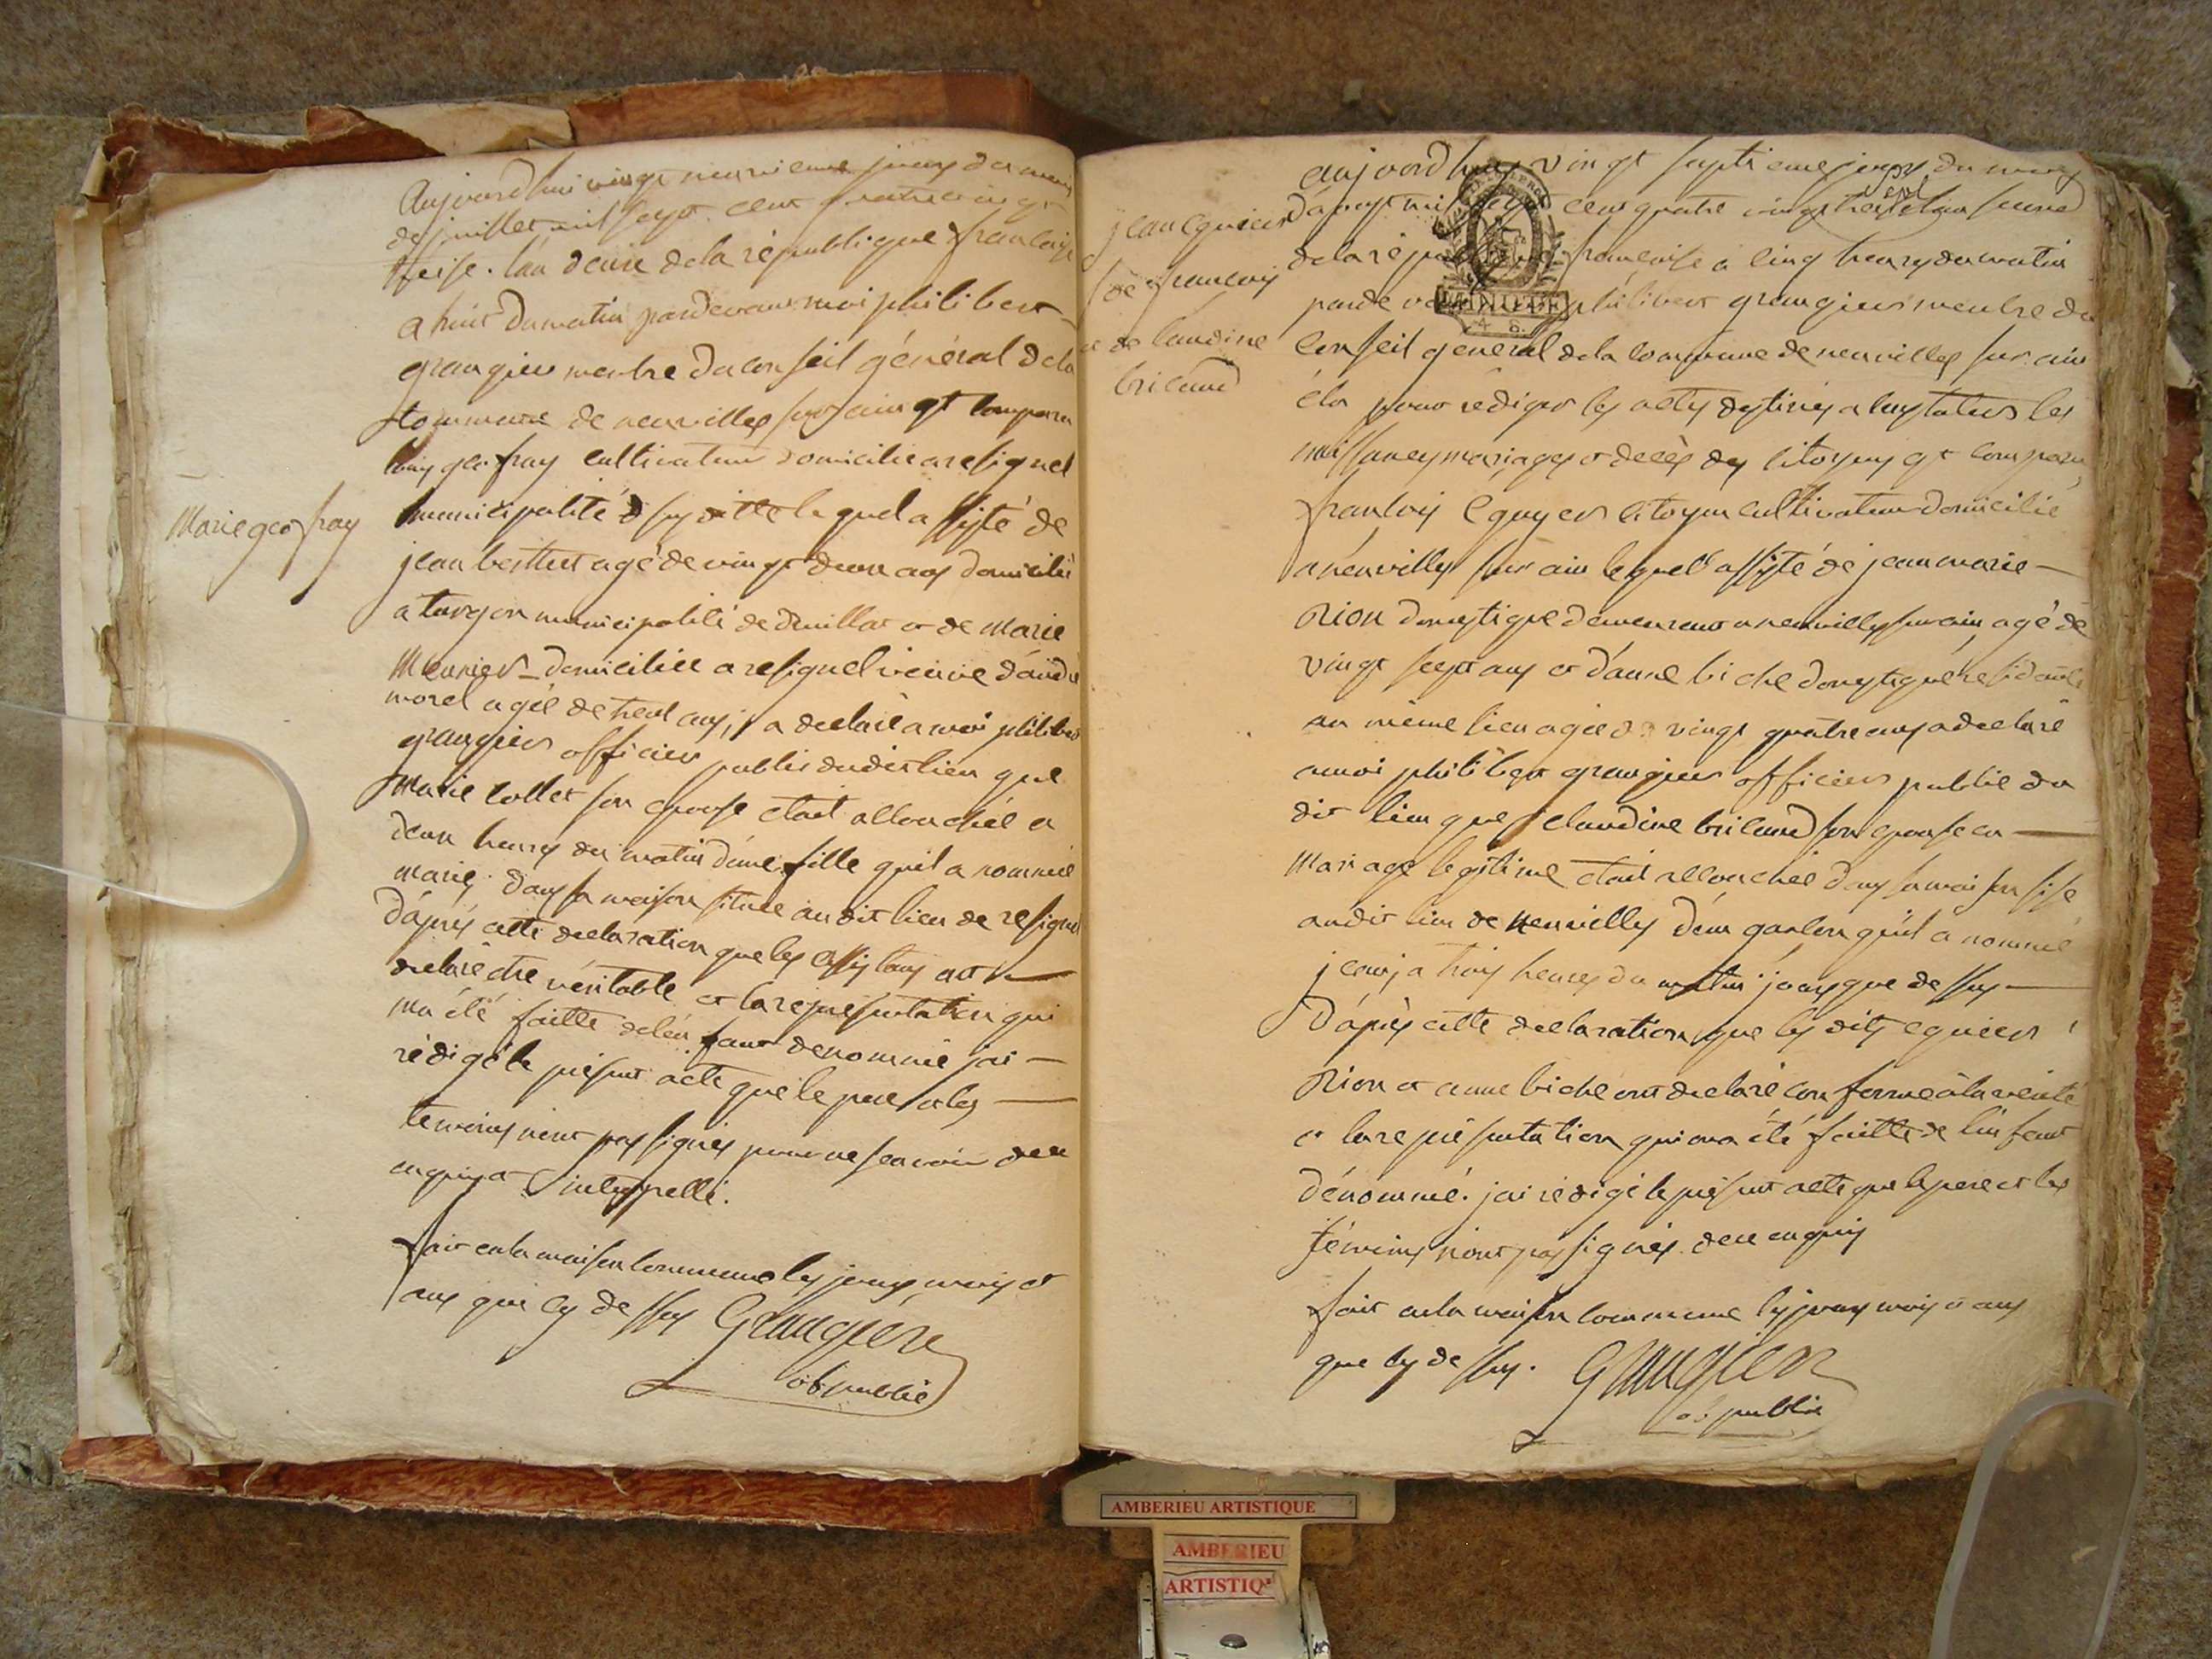 Marie geofray
Aujourdhui vingt neuvieme jour du mois
de juillet mil sept cent quatre vingt
treise. l'an deux de la république francoise
a huit du matin pardevant moi philibert
grangier membre du conseil général de la
commune de neuville sur ain est comparu
geofray cultivateur domicilié a resignel
municipalité lequel assisté de
jean berthet agé de vingt deux ans domicilié
a turgon municipalité de druillat et de Marie
Meunier domiciliée a resignel veuve d'andré
morel agée de trent ans, a declaré a moi philibert
grangier officier public dudit lieu que
Marie collet son epouse etait accouchée a
deux heures du matin d'une fille qu'il a nommée
marie dans sa maison située audit lieu de resignel
D'après cette declaration que les assistans ont
declaré etre véritable et la représentation qui
m'a été faitte de l'enfant denommé jai
rédigé le présent acte que le pere et les
temoins n'ont pas signés pour ne scavoir de ce
enquis et interpellé.
fait en la maison commune les jours mois et
ans que cy dessus Grangier
of public
jean eguier
de francois
et de claudine
briland
aujourdhuy vingt septieme jour du mois
d'aoust mil sept cent quatre vingt treise l'an second
de la république francoise a cinq heures du matin
par devant philibert grangier membre du
conseil general de la commune de neuville sur ain
élu pour rédiger les actes destinés a constater les
naissances mariages et decès des citoyens est comparu
francois eguyer citoyen cultivateur domicilié
a neuville sur ain lequel assisté de jean marie
Rion domestique demeurant a neuville sur ain agé de
vingt sept ans et d'anne biche domestique résidante
au même lieu agée de vingt quatre ans a declaré
a moi philibert grangier officier public du
dit lieu que claudine briland son epouse en
Mariage legitime etait accouchée dans sa maison sise
audit lieu de neuville d'un garcon qu'il a nommé
jean a trois heures du matin jour que dessus
D'après cette declaration que les dits eguier
Rion et anne biche ont declaré conforme à la vérité
et la représentation qui m'a été faitte de l'enfant
dénommé. jai rédigé le présent acte que le pere et les
témoins n'ont pas signés de ce enquis
fait en la maison commune les jours mois et ans
que cy dessus. Grangier
of public
MINUTE
4 S.
AMBERIEU ARTISTIQUE
AMBERIEU
ARTISTIQ